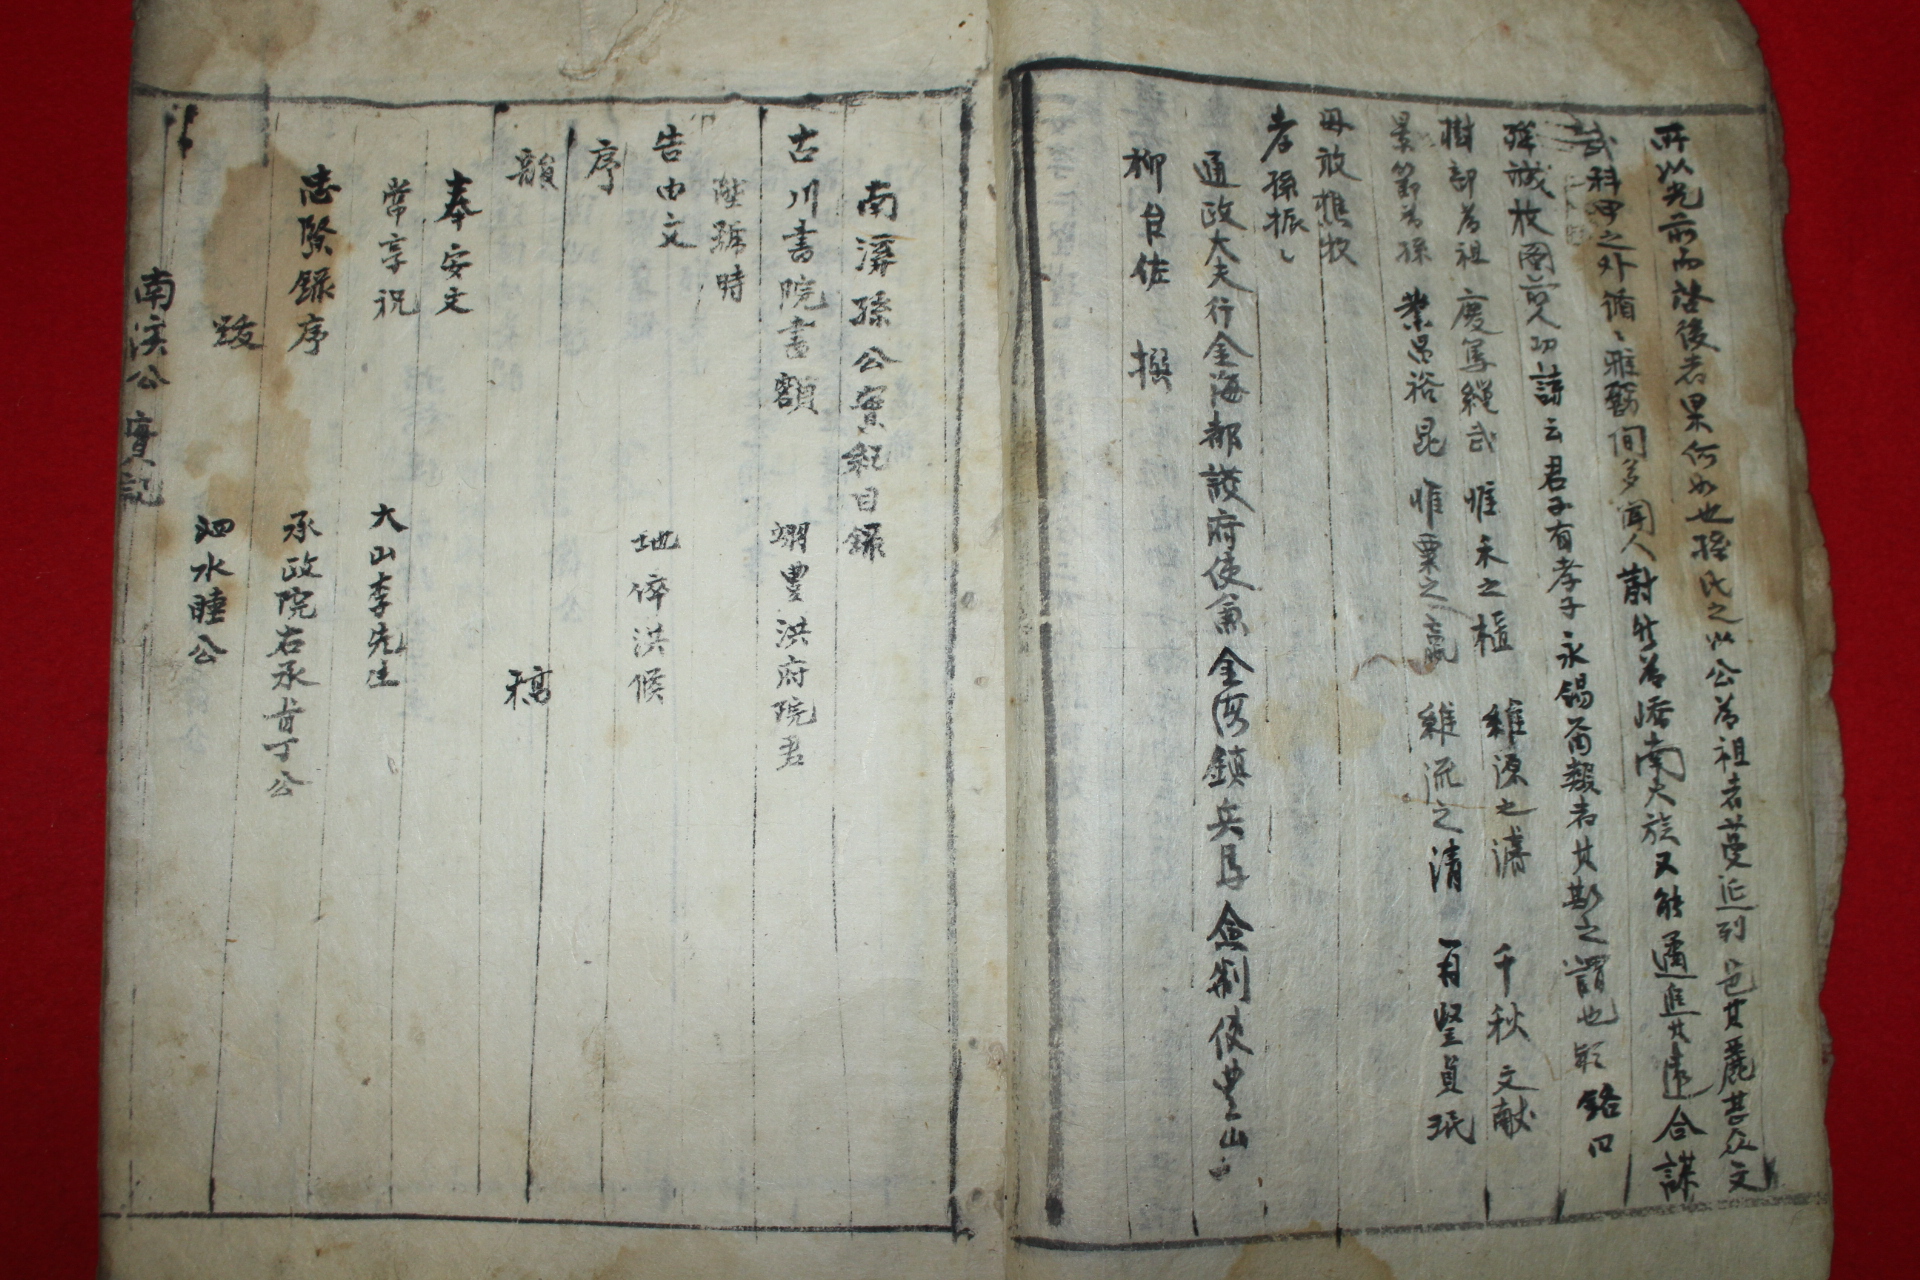 所以光前而啓後者果何如也孫氏之以公爲祖者蔓延列邑其麗甚众文
武科甲之外循〻雅飭間多聞人蔚然爲嶠南大族又能遹追其遠合謀
殫誠枚圖前人功詩云君子有孝子永錫甭類者其斯之謂也欤銘曰
樹部爲祖 慶篤縄武 惟永之樞 維源之濬 千秋文献
景節爲孫 業昌裕昆 惟粟之 維流之清 有堅貞珉
毋敢樵牧
孝孫振〻
通政大夫行金海都護府使兼金海鎮兵馬僉制使豊山
柳台佐 撰
南溪孫公實紀目錄
古川書院書額 翊豊洪府院君
陞號時
告由文 地倅洪候
序
韻 稿
奉安文
常享祝 大山李先生
忠 录序 承政院右承旨丁公
跋 泗水睦公
南溪公實記